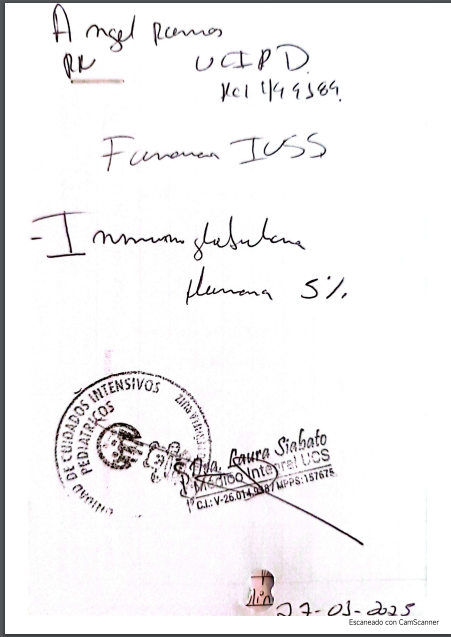 Angel Ramos
RN UCIPD.
Farmacia IVSS
- Inmunoglobulina
Humana 5%
UNIDAD DE CUIDADOS INTENSIVOS
PEDIATRICOS
Dra. Laura Siabato
Médico Integral UCS
C.I.: V-26.014.938 / MPPS: 157675
27-03-2025
Escaneado con CamScanner